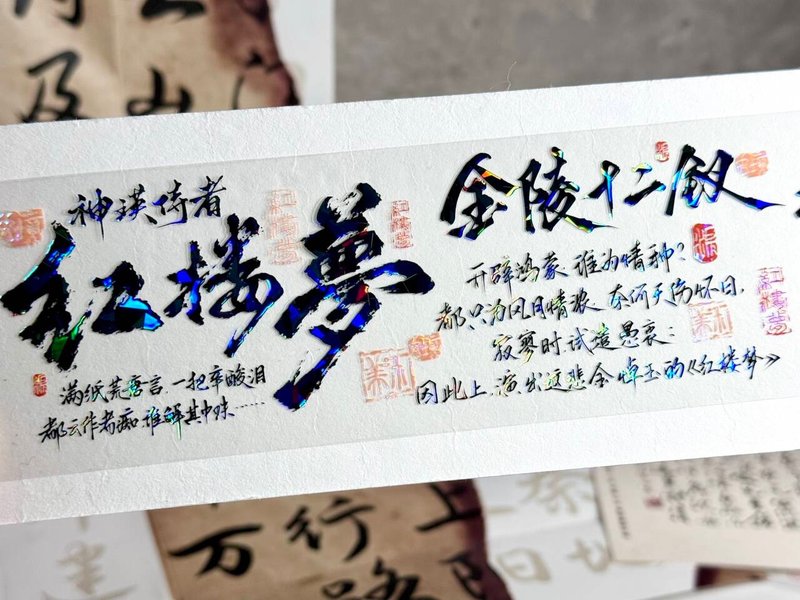 神瑛侍者
红楼夢
满纸荒唐言 一把辛酸泪
都云作者痴 谁解其中味……
金陵十二钗
开辟鸿蒙 谁为情种?
都只为风月情浓 奈何天 伤怀日,
寂寥时 试遣愚衷:
因此上 演出这悲金悼玉的《红楼梦》
及
山
万
行
路
上